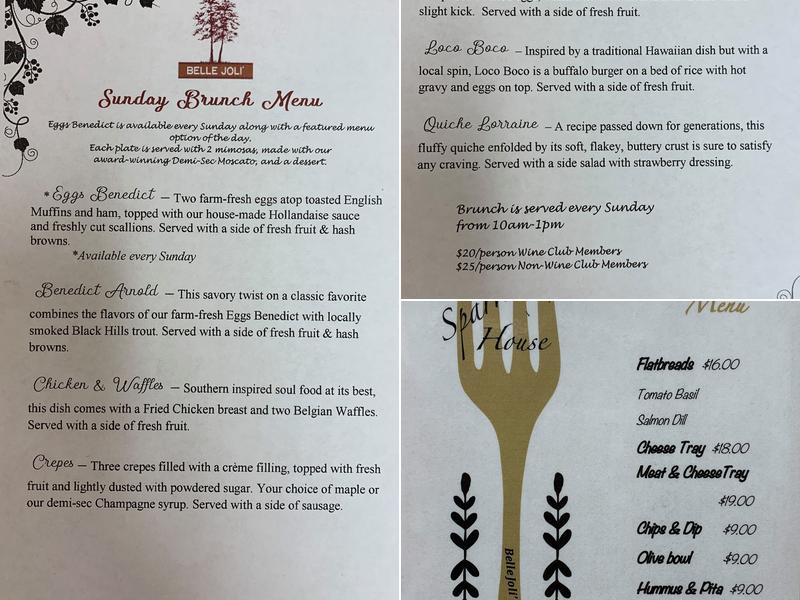 BELLE JOLI'
Sunday Brunch Menu
Eggs Benedict is available every Sunday along with a featured menu
option of the day.
Each plate is served with 2 mimosas, made with our
award-winning Demi-Sec Moscato, and a dessert.
*Eggs Benedict – Two farm-fresh eggs atop toasted English
Muffins and ham, topped with our house-made Hollandaise sauce
and freshly cut scallions. Served with a side of fresh fruit & hash
browns.
*Available every Sunday
Benedict Arnold – This savory twist on a classic favorite
combines the flavors of our farm-fresh Eggs Benedict with locally
smoked Black Hills trout. Served with a side of fresh fruit & hash
browns.
Chicken & Waffles – Southern inspired soul food at its best,
this dish comes with a Fried Chicken breast and two Belgian Waffles.
Served with a side of fresh fruit.
Crepes – Three crepes filled with a crème filling, topped with fresh
fruit and lightly dusted with powdered sugar. Your choice of maple or
our demi-sec Champagne syrup. Served with a side of sausage.
slight kick. Served with a side of fresh fruit.
Loco Boco – Inspired by a traditional Hawaiian dish but with a
local spin, Loco Boco is a buffalo burger on a bed of rice with hot
gravy and eggs on top. Served with a side of fresh fruit.
Quiche Lorraine – A recipe passed down for generations, this
fluffy quiche enfolded by its soft, flakey, buttery crust is sure to satisfy
any craving. Served with a side salad with strawberry dressing.
Brunch is served every Sunday
from 10am-1pm
$20/person Wine Club Members
$25/person Non-Wine Club Members
House
Menu
Flatbreads $16.00
Tomato Basil
Salmon Dill
Cheese Tray $18.00
Meat & Cheese Tray
$19.00
Chips & Dip $9.00
Olive bowl $9.00
Hummus & Pita $9.00
Belle Joli'